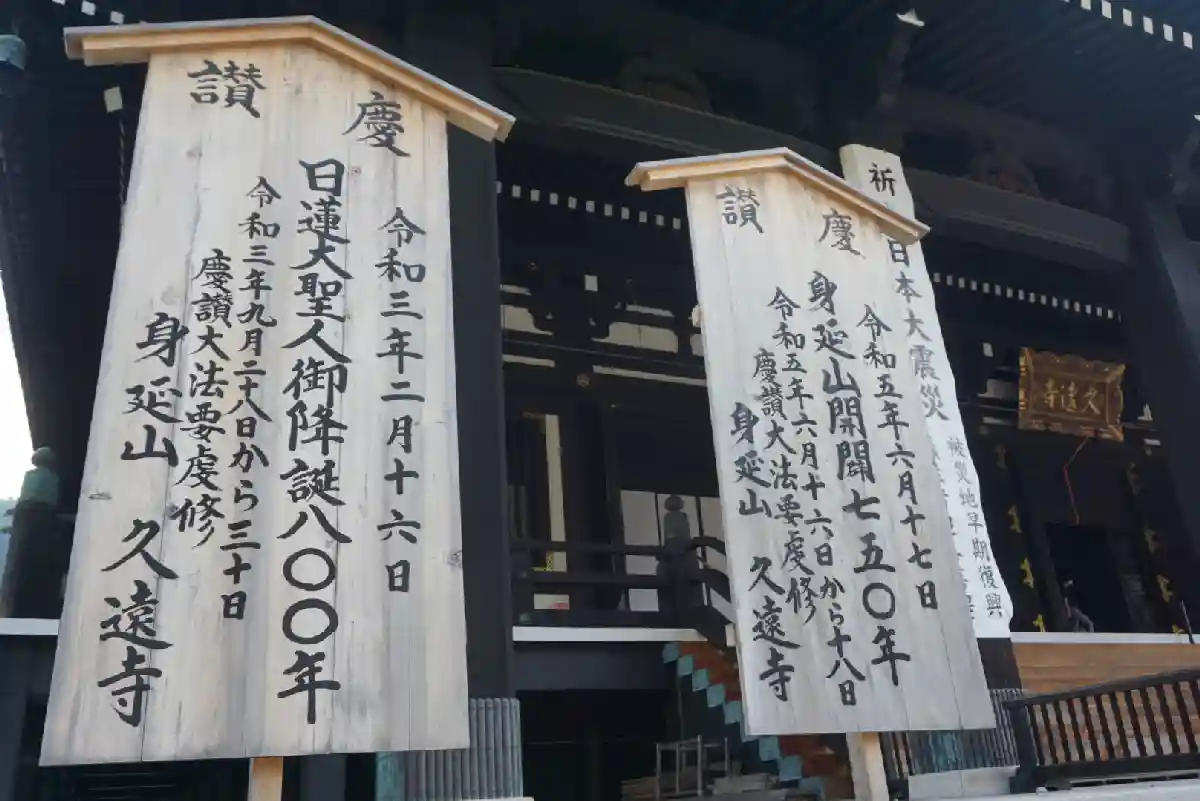 慶讃
令和三年二月十六日
日蓮大聖人御降誕八〇〇年
令和三年九月二十八日から三十日
慶讃大法要虔修
身延山 久遠寺
慶讃
令和五年六月十七日
身延山開闢七五〇年
令和五年六月十六日から十八日
慶讃大法要虔修
身延山 久遠寺
祈
日本大震災
被災地早期復興
久遠寺